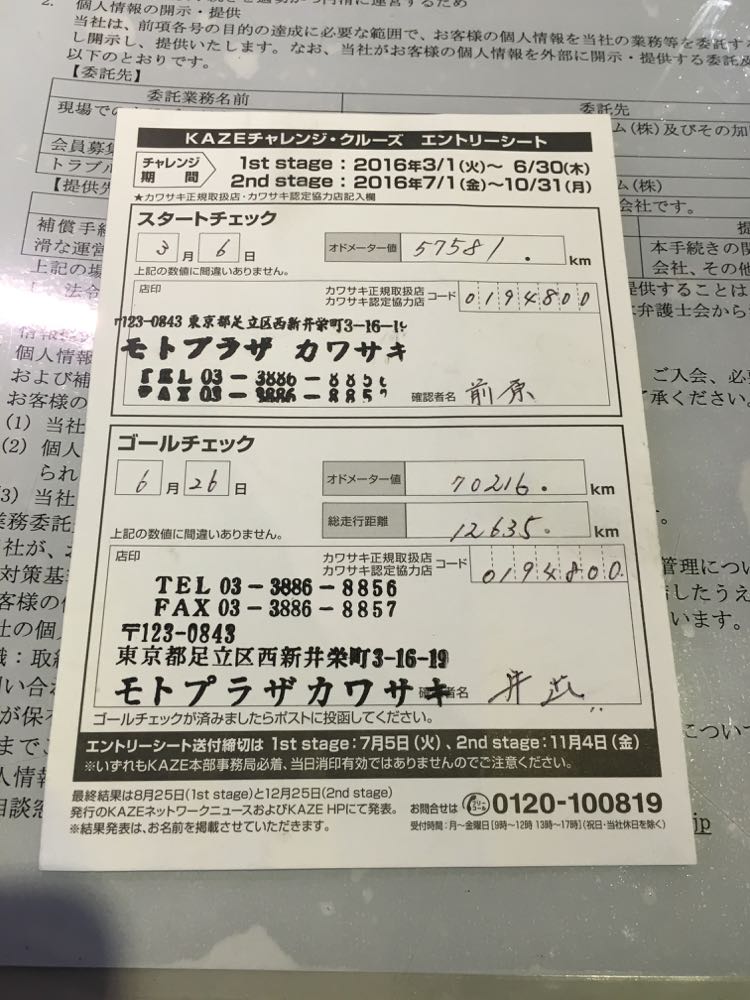 2. 個人情報の開示・提供
当社は、前項各号の目的の達成に必要な範囲で、お客様の個人情報を当社の業務等を委託す
し開示し、提供いたします。なお、当社がお客様の個人情報を外部に開示・提供する委託及
以下のとおりです。
【委託先】
委託業務名前 委託先
現場での
会員募集
トラブル
【提供先
補償手続
滑な運営
上記の場
KAZEチャレンジ・クルーズ エントリーシート
チャレンジ期間
1st stage:2016年3/1(火)~ 6/30(木)
2nd stage:2016年7/1(金)~10/31(月)
★カワサキ正規取扱店・カワサキ認定協力店記入欄
スタートチェック
3月6日 オドメーター値 57581. km
上記の数値に間違いありません。
店印 カワサキ正規取扱店
カワサキ認定協力店 コード 0194800
〒123-0843 東京都足立区西新井栄町3-16-19
モトプラザ カワサキ
TEL 03-3886-885
FAX 03-3886-885
確認者名 前原
ゴールチェック
6月26日 オドメーター値 70216. km
総走行距離 12635. km
上記の数値に間違いありません。
店印 カワサキ正規取扱店
カワサキ認定協力店 コード 0194800
TEL 03-3886-8856
FAX 03-3886-8857
〒123-0843
東京都足立区西新井栄町3-16-19
モトプラザカワサキ
確認者名
ゴールチェックが済みましたらポストに投函してください。
エントリーシート送付締切は 1st stage:7月5日(火)、2nd stage:11月4日(金)
※いずれもKAZE本部事務局必着、当日消印有効ではありませんのでご注意ください。
最終結果は8月25日(1st stage)と12月25日(2nd stage)
発行のKAZEネットワークニュースおよびKAZE HPにて発表。
※結果発表は、お名前を掲載させていただきます。
お問合せは フリーコール 0120-100819
受付時間:月~金曜日[9時~12時 13時~17時](祝日・当社休日を除く)